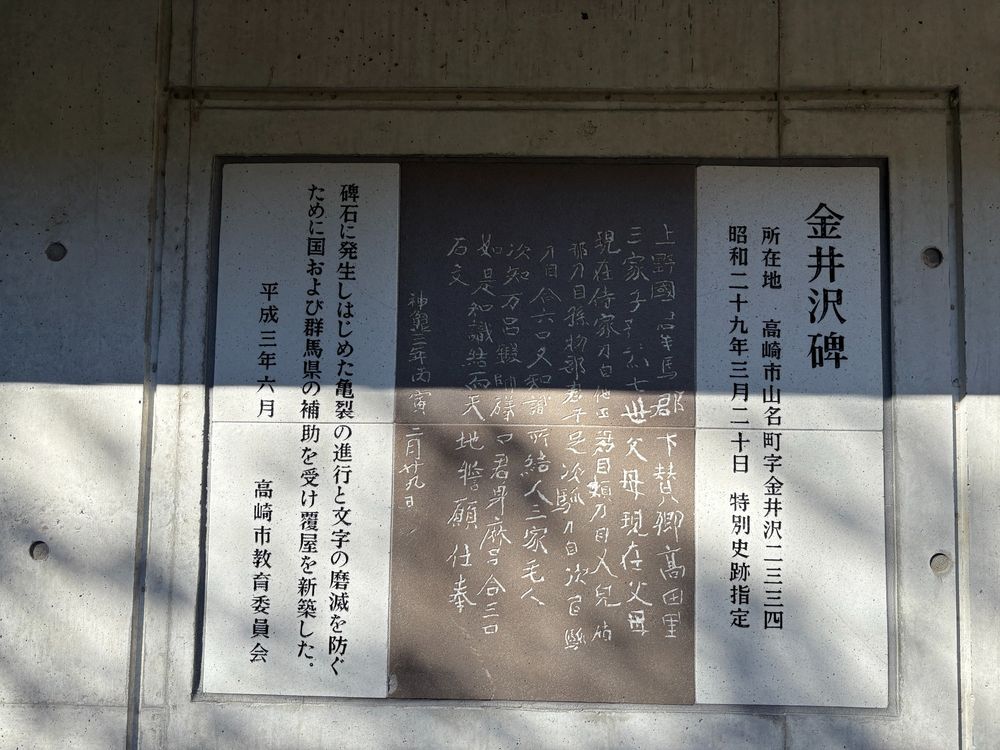 金井沢碑
所在地 高崎市山名町字金井沢二三三四
昭和二十九年三月二十日 特別史跡指定
上野國羣馬郡下賛郷高田里
三家子孫 七世父母現在父母
現在侍家刀自 目頬刀自又兒
那刀自孫物部君午足次 刀自次
刀自合六口又知識所結人三家毛人
次知万呂鍛師礒マ君身麻呂合三口
如是知識結而天地誓願仕奉
石文
神龜三年丙寅二月廿九日
碑石に発生しはじめた亀裂の進行と文字の磨滅を防ぐ
ために国および群馬県の補助を受け覆屋を新築した。
平成三年六月 高崎市教育委員会